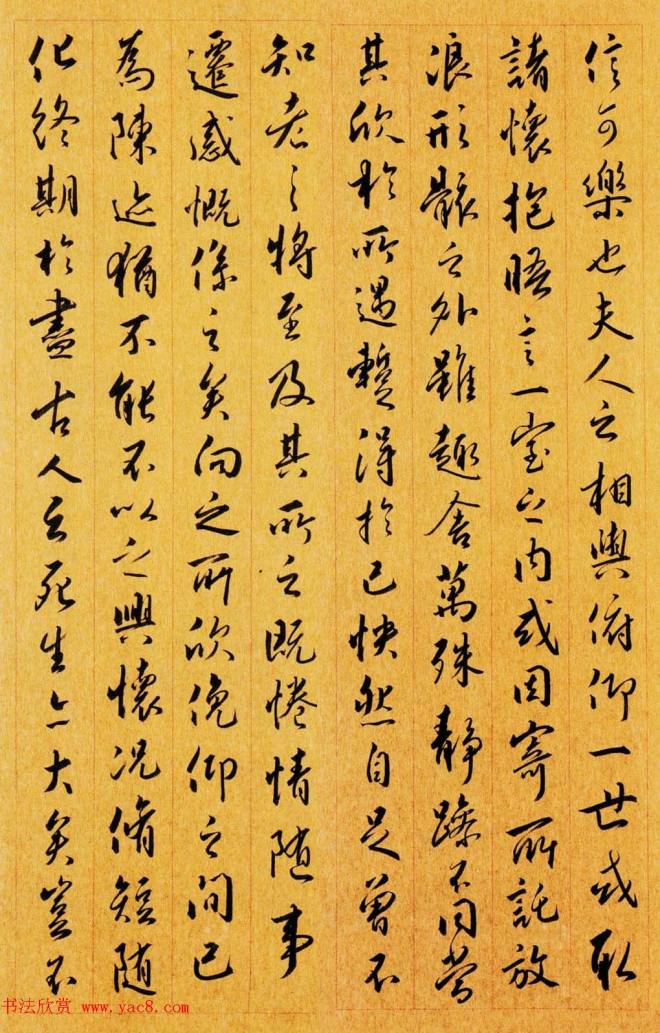 信可樂也夫人之相與俯仰一世或取
諸懷抱晤言一室之内或因寄所託放
浪形骸之外雖趣舍萬殊靜躁不同當
其欣於所遇暫得於己快然自足曾不
知老之將至及其所之既惓情隨事
遷感慨係之矣向之所欣俛仰之間已
為陳迹猶不能不以之興懷况脩短隨
化終期於盡古人云死生亦大矣豈不
书法欣赏 www.yac8.com